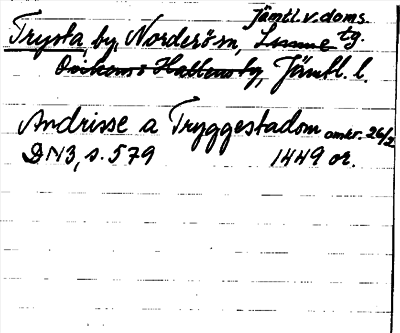 jämtl. v. doms.
Trysta, by, Norderö sn, Sunne tg.
Hallens tg, Jämtl. l.
Andrisse a Tryggestadom omkr. 26/2
DN3, s. 579 1449 or.